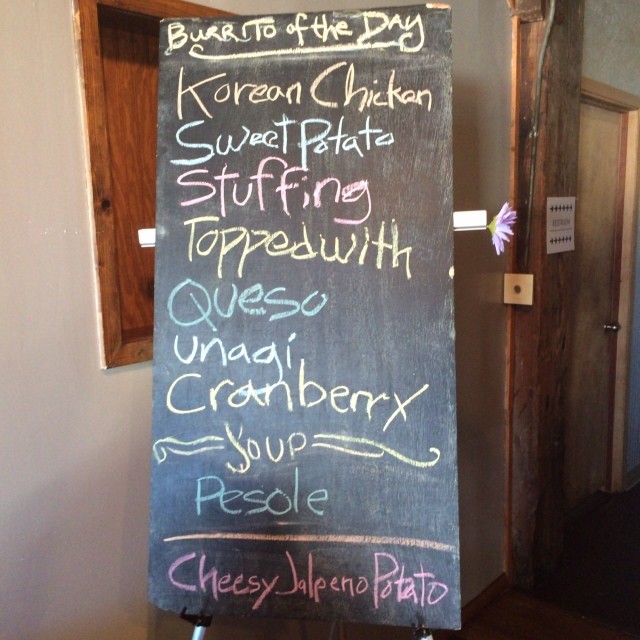 Burrito of the Day
Korean Chicken
Sweet Potato
Stuffing
Topped with
Queso
unagi
Cranberry
Soup
Pesole
Cheesy Jalpeno Potato